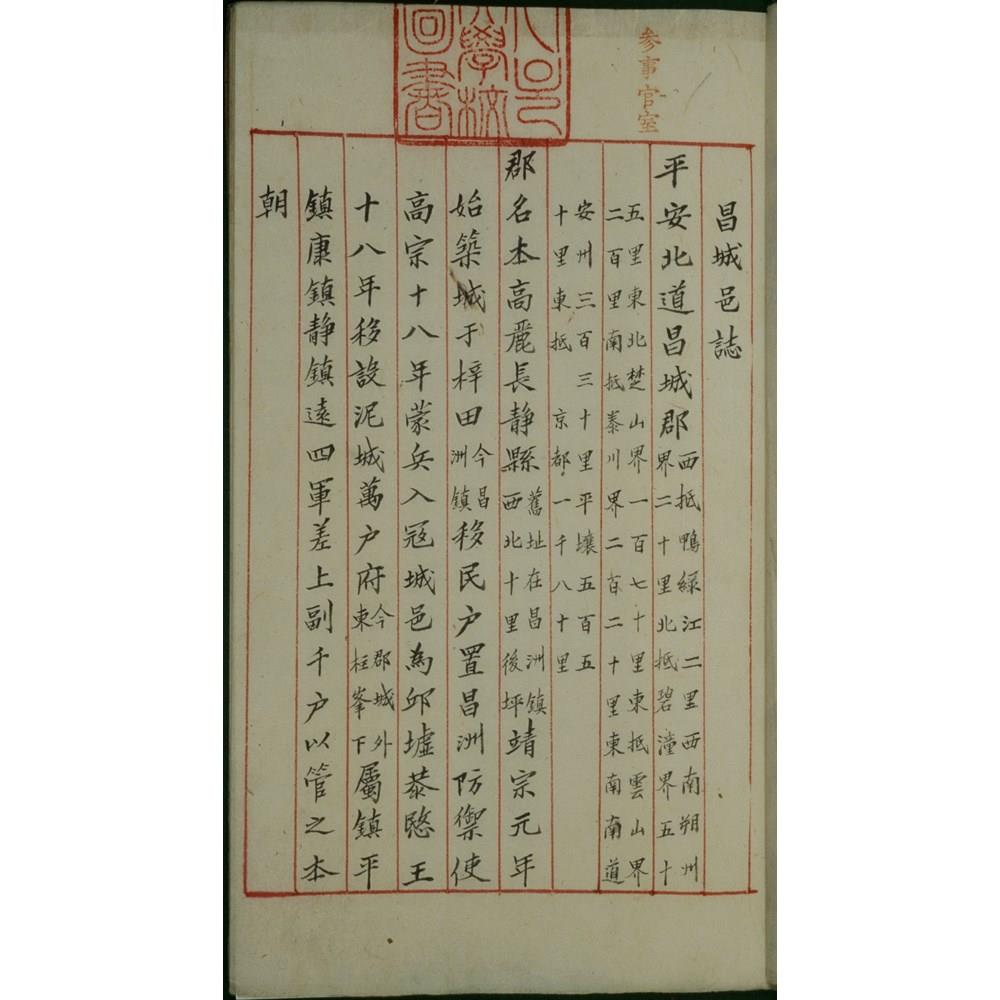 参事官室
大學校
圖書
昌城邑誌
平安北道昌城郡西抵鴨綠江二里西南朔州界二十里北抵碧潼界五十
五里東北楚山界一百七十里東抵雲山界
二百里南抵泰川界二百二十里東南南道
安州三百三十里平壤五百五
十里東抵 京都一千八十里
郡名本高麗長静縣舊址在昌洲鎮西北十里後坪靖宗元年
始築城于梓田今昌洲鎮移民户置昌洲防禦使
高宗十八年蒙兵入冦城邑為邱墟恭愍王
十八年移設泥城萬户府今郡城外東枉峯下屬鎮平
鎮康鎮静鎮遠四軍差上副千户以管之本
朝